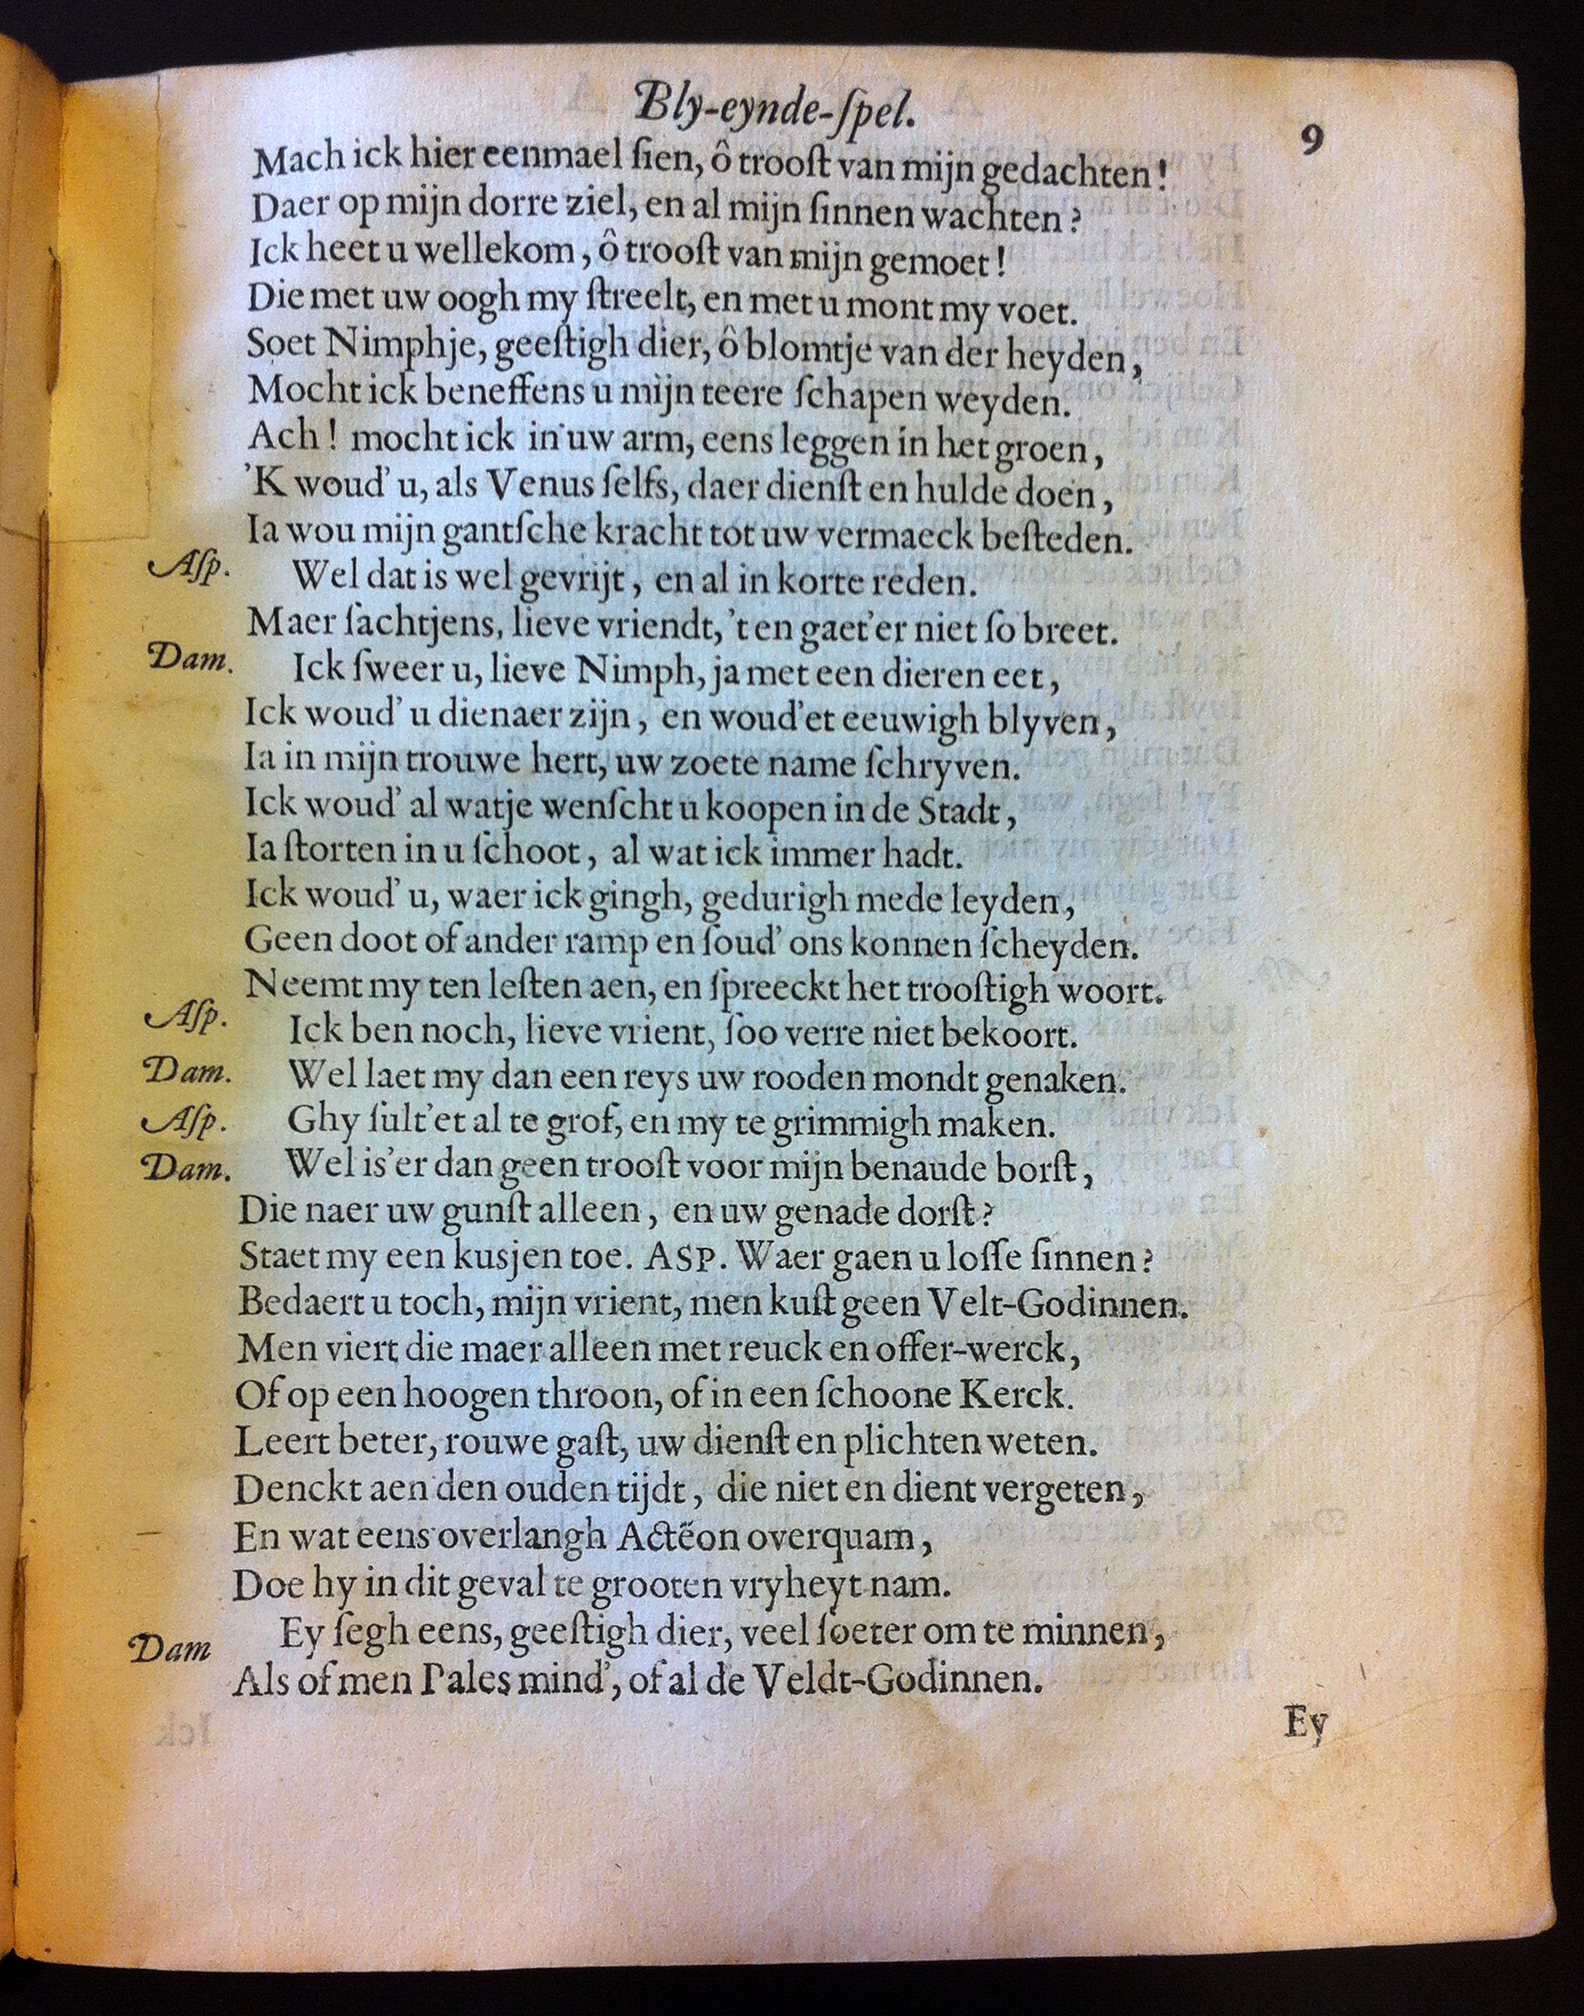 Bly-eynde-ſpel.
9
Mach ick hier eenmael ſien, ô trooſt van mijn gedachten!
Daer op mijn dorre ziel, en al mijn ſinnen wachten?
Ick heet u wellekom, ô trooſt van mijn gemoet!
Die met uw oogh my ſtreelt, en met u mont my voet.
Soet Nimphje, geeſtigh dier, ô blomtje van der heyden,
Mocht ick beneffens u mijn teere ſchapen weyden.
Ach! mocht ick in uw arm, eens leggen in het groen,
'K woud' u, als Venus ſelfs, daer dienſt en hulde doen,
Ia wou mijn gantſche kracht tot uw vermaeck beſteden.
Aſp. Wel dat is wel gevrijt, en al in korte reden.
Maer ſachtjens, lieve vriendt, 't en gaet'er niet ſo breet.
Dam. Ick ſweer u, lieve Nimph, ja met een dieren eet,
Ick woud' u dienaer zijn, en woud'et eeuwigh blyven,
Ia in mijn trouwe hert, uw zoete name ſchryven.
Ick woud' al watje wenſcht u koopen in de Stadt,
Ia ſtorten in u ſchoot, al wat ick immer hadt.
Ick woud' u, waer ick gingh, gedurigh mede leyden,
Geen doot of ander ramp en ſoud' ons konnen ſcheyden.
Neemt my ten leſten aen, en ſpreeckt het trooſtigh woort.
Aſp. Ick ben noch, lieve vrient, ſoo verre niet bekoort.
Dam. Wel laet my dan een reys uw rooden mondt genaken.
Aſp. Ghy ſult'et al te grof, en my te grimmigh maken.
Dam. Wel is'er dan geen trooſt voor mijn benaude borſt,
Die naer uw gunſt alleen, en uw genade dorſt?
Staet my een kusjen toe. ASP. Waer gaen u loſſe ſinnen?
Bedaert u toch, mijn vrient, men kuſt geen Velt-Godinnen.
Men viert die maer alleen met reuck en offer-werck,
Of op een hoogen throon, of in een ſchoone Kerck.
Leert beter, rouwe gaſt, uw dienſt en plichten weten.
Denckt aen den ouden tijdt, die niet en dient vergeten,
En wat eens overlangh Actëon overquam,
Doe hy in dit geval te grooten vryheyt nam.
Dam Ey ſegh eens, geeſtigh dier, veel ſoeter om te minnen,
Als of men Pales mind', of al de Veldt-Godinnen.
Ey